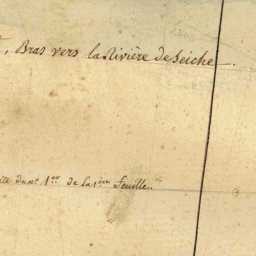 , Bras vers la Rivière de Seiche.
du n.º 1.er de la 1.ère Feuille.